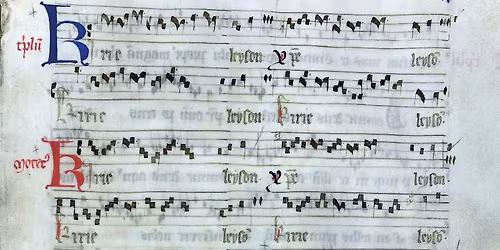 Kirie leyson Xp̄e leyso᷑
Kirie leyson Kirie leyso᷑
Kirie leyson Xp̄e leyson
Kirie leyson Kirie leyso᷑